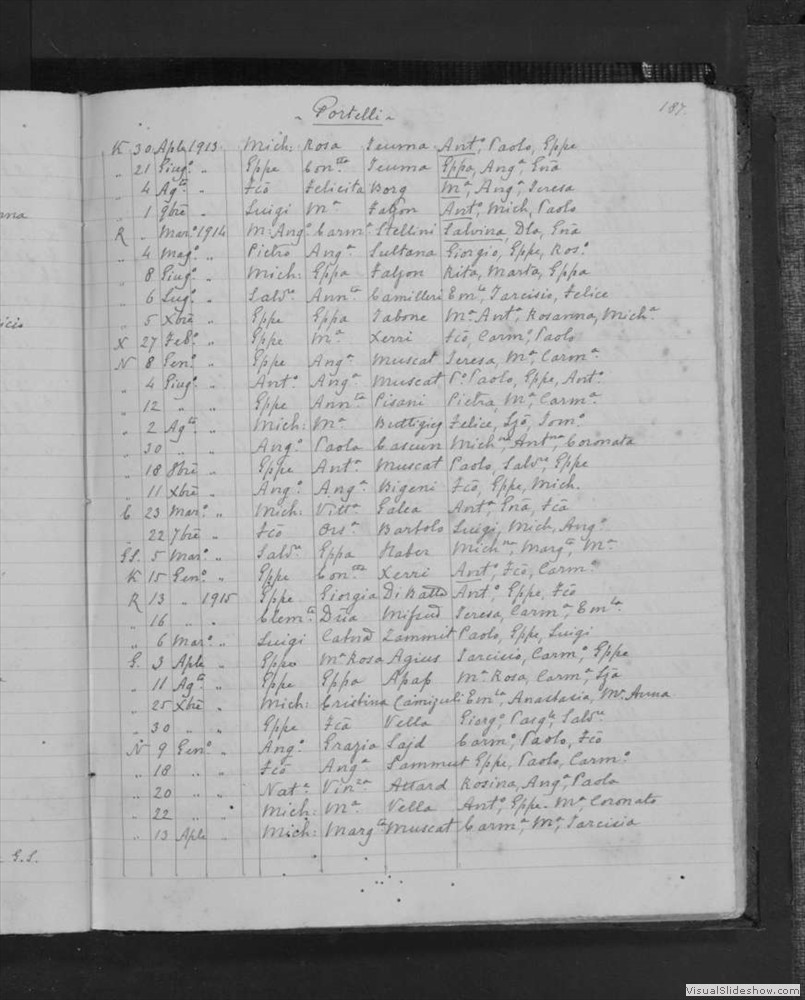 - Portelli -
187.
K 30 Aple 1913 Mich: Rosa Teuma Antº, Paolo, Eppe
„ 21 Giugº „ Eppe Con:tta Teuma Eppa, Angª, Enā
„ 4 Agto „ Fcō Felicita Borg Mª, Angª, Teresa
„ 1 9bre „ Luigi Mª Falzon Antº, Mich, Paolo
R „ Marº 1914 M: Angº Carmª Stellini Salvina, Dla, Enā
„ 4 Magº „ Pietro Angª Sultana Giorgio, Eppe, Rosº
„ 8 Giugº „ Mich: Eppa Falzon Rita, Marta, Eppa
„ 6 Lugº „ Salvre Annta Camilleri Emla, Tarcisio, Felice
„ 5 Xbre „ Eppe Eppa Tabone Mª Antª, Rosanna, Michª
X 27 Febº „ Eppe Mª Xerri Fcō, Carmº, Paolo
N 8 Genº „ Eppe Angª Muscat Teresa, Mª, Carmª
„ 4 Giugº „ Antº Angª Muscat Pº Paolo, Eppe, Antº
„ 12 „ „ Eppe Annta Pisani Pietra, Mª, Carmª
„ 2 Agto „ Mich: Mª Buttigieg Felice, Ljō, Tomº
„ 30 „ „ Angº Paola Cascun Michna, Antna, Coronata
„ 18 8bre „ Eppe Antª Muscat Paolo, Salvre, Eppe
„ 11 Xbre „ Angº Angª Bigeni Fcō, Eppe, Mich.
C 23 Marº „ Mich: Vittª Galea Antª, Enā, Fcā
„ 22 7bre „ Fcō Orsª Bartolo Luigi, Mich, Angº
GS. 5 Marº „ Salvre Eppa Haber Michna, Margta, Mª
K 15 Genº „ Eppe Con:tta Xerri Antº, Fcō, Carmº
R 13 „ 1915 Eppe Giorgia Di Batta Antº, Eppe, Fcō
„ 16 „ „ Clemte Dūa Mifsud Teresa, Carmª, Emla
„ 6 Marº „ Luigi Catna Zammit Paolo, Eppe, Luigi
G. 3 Aple „ Eppe Mª Rosa Agius Tarcisio, Carmº, Eppe
„ 11 Agto „ Eppe Eppa Apap Mª Rosa, Carmª, Ljā
„ 25 Xbre „ Mich: Cristina Emla, Anastasia, Mª Anna
„ 30 „ „ Eppe Fcā Vella Giorgº, Pasqle, Salvre
N 9 Genº „ Angº Grazia Sajd Carmº, Paolo, Fcō
„ 18 „ „ Fcō Angª Sammut Eppe, Paolo, Carmº
„ 20 „ „ Natª Vinza Attard Rosina, Angª, Paola
„ 22 „ „ Mich: Mª Vella Antº, Eppe - Mª, Coronato
„ 13 Aple „ Mich: Margta Muscat Carmª, Mª, Tarcisia
G.S.
VisualSlideshow.com